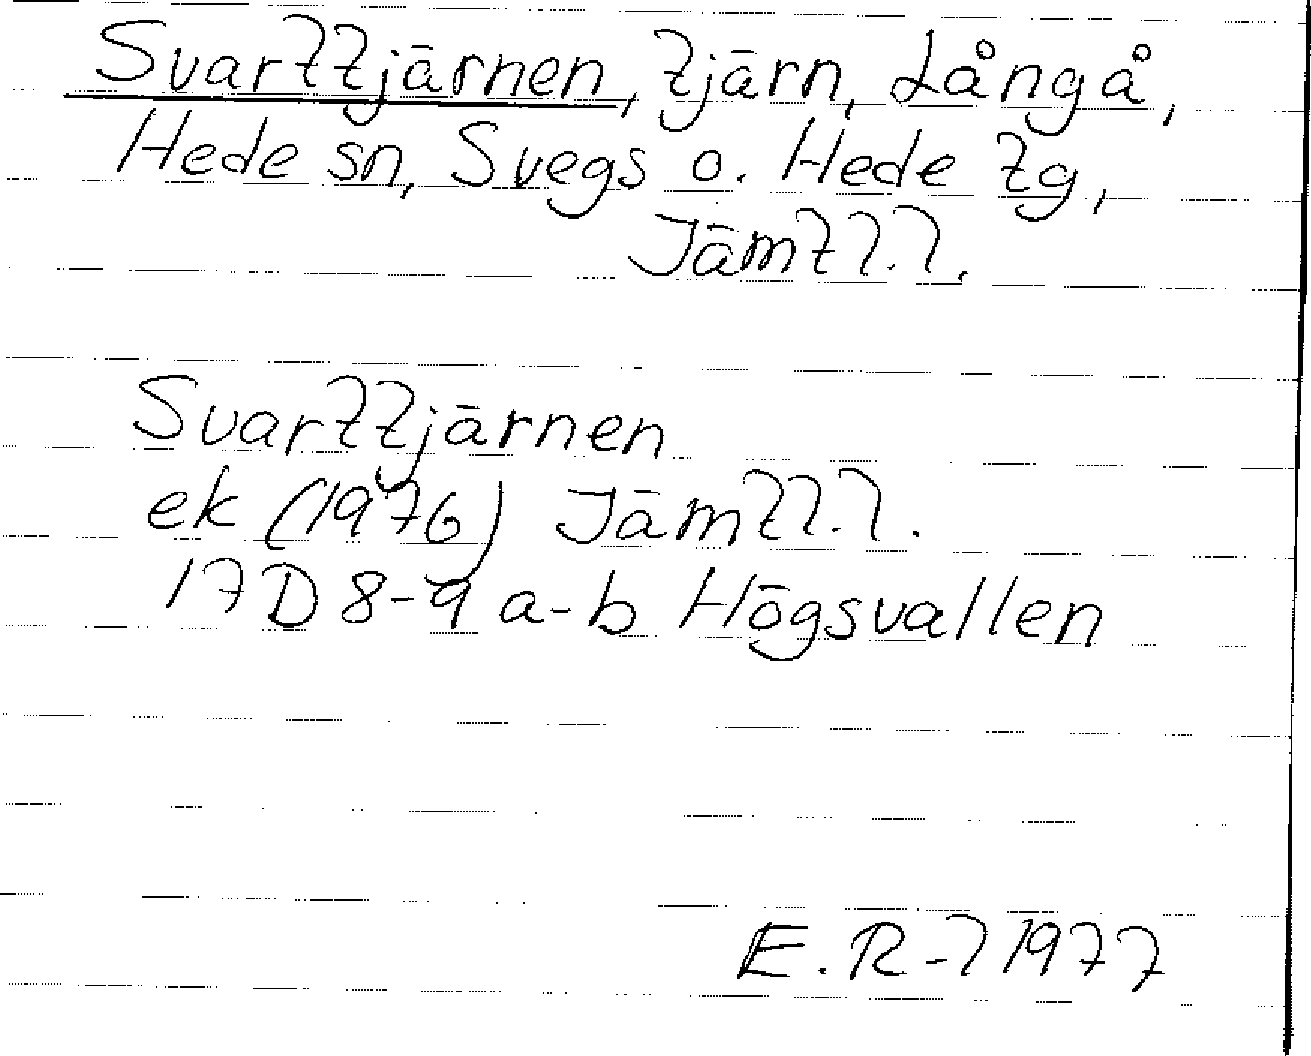 Svarttjärnen, tjärn, Långå,
Hede sn, Svegs o. Hede tg,
Jämtl.l.
Svarttjärnen
ek (1976) Jämtl.l.
17D 8-9 a-b Högsvallen
E.R-l 1977